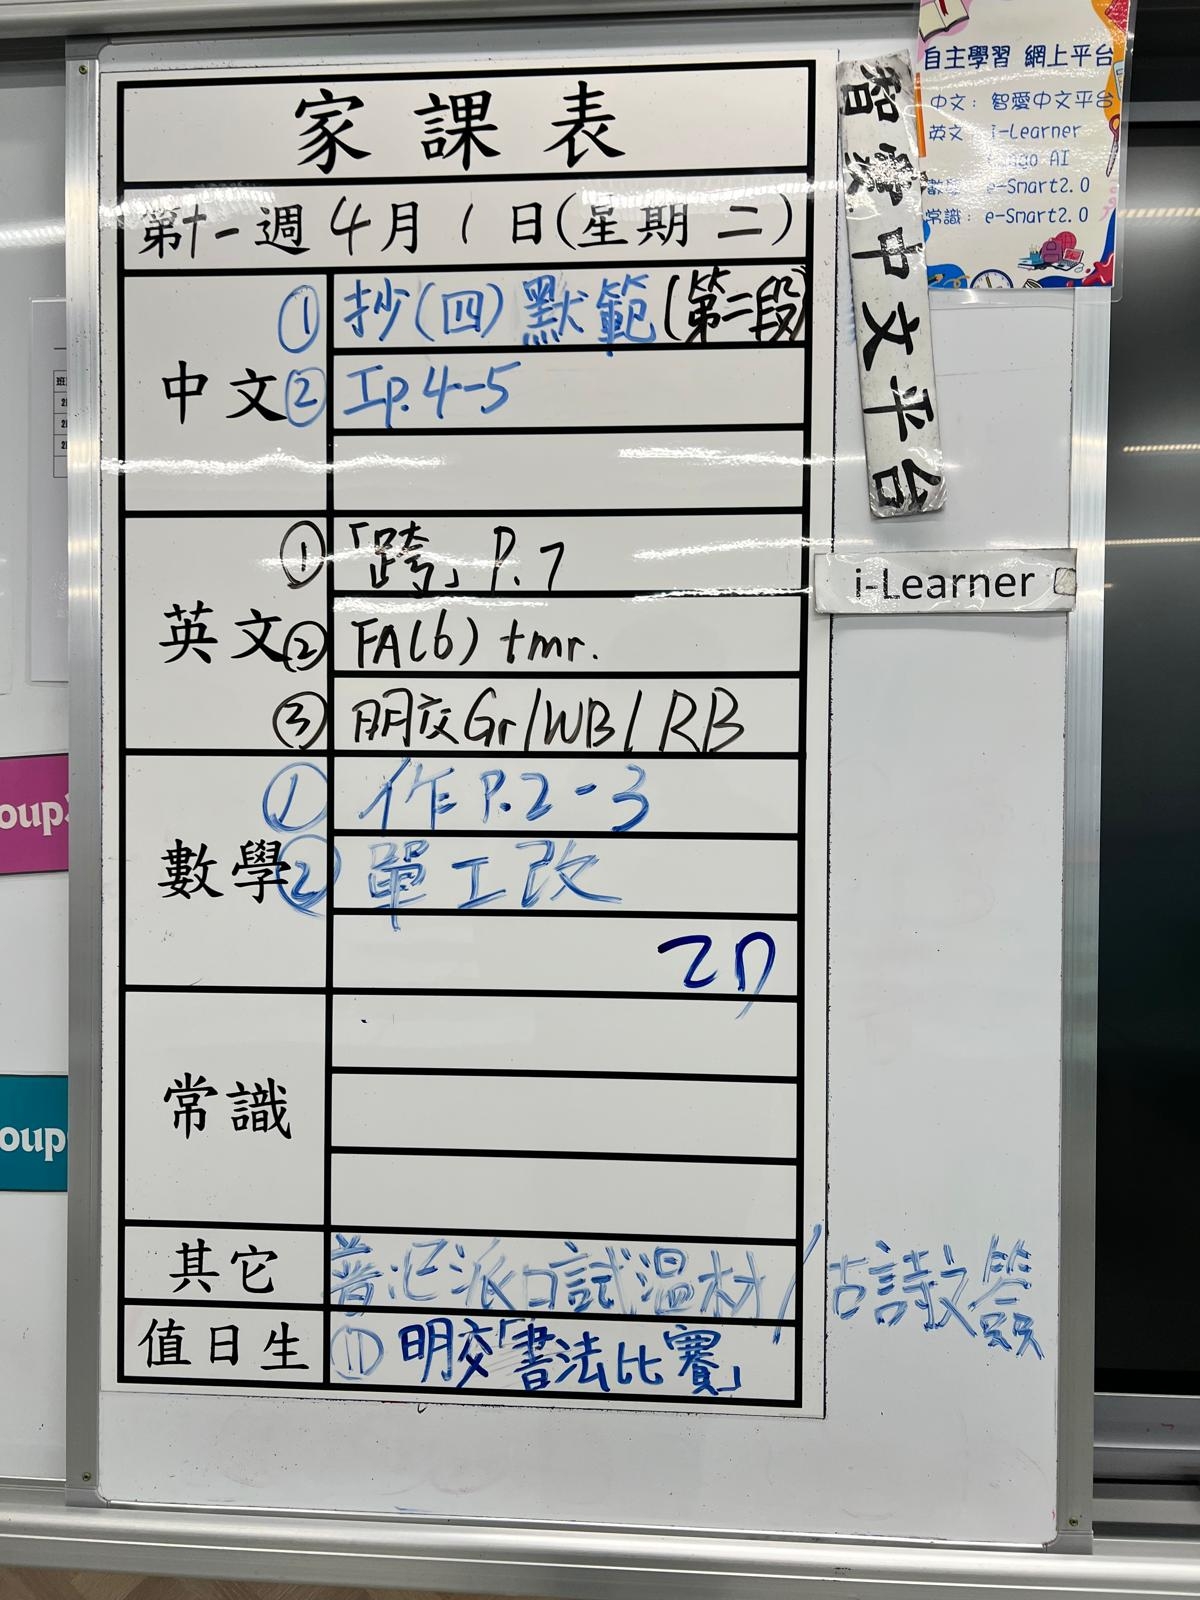 家課表
第十一週4月1日(星期二)
中文
① 抄(四)默範(第二段)
② 工p.4-5
英文
① 「跨」P.7
② FA(6) tmr.
③ 明交Gr/WB/RB
數學
① 作P.2-3
② 單工改
2D
常識
其它
普范派口試溫材/古詩文簽
值日生
⑪ 明交「書法比賽」
智愛中文平台
i-Learner
自主學習 網上平台
中文: 智愛中文平台
英文: i-Learner
AI
數學: e-Smart2.0
常識: e-Smart2.0